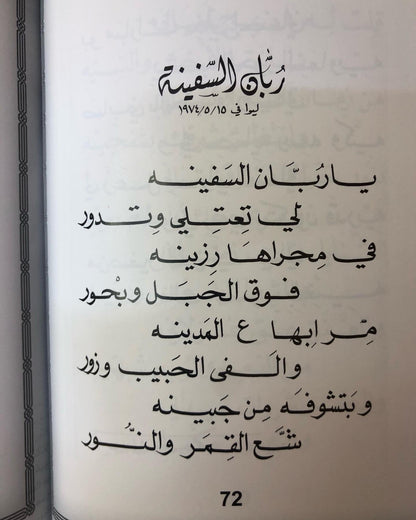 رُبَّان السَّفينة
ليوا في ١٩٧٤/٥/١٥
يا رُبَّان السَفينه
لي تِعتِلي وتدور
في مِجراها رِزينه
فوق الجَبَل وبْحور
مِّر ابها ع المَدينه
والفى الحَبيب وزور
وبَتشوفَه مِن جَبينه
شَّع القِمَر والنُّور
72